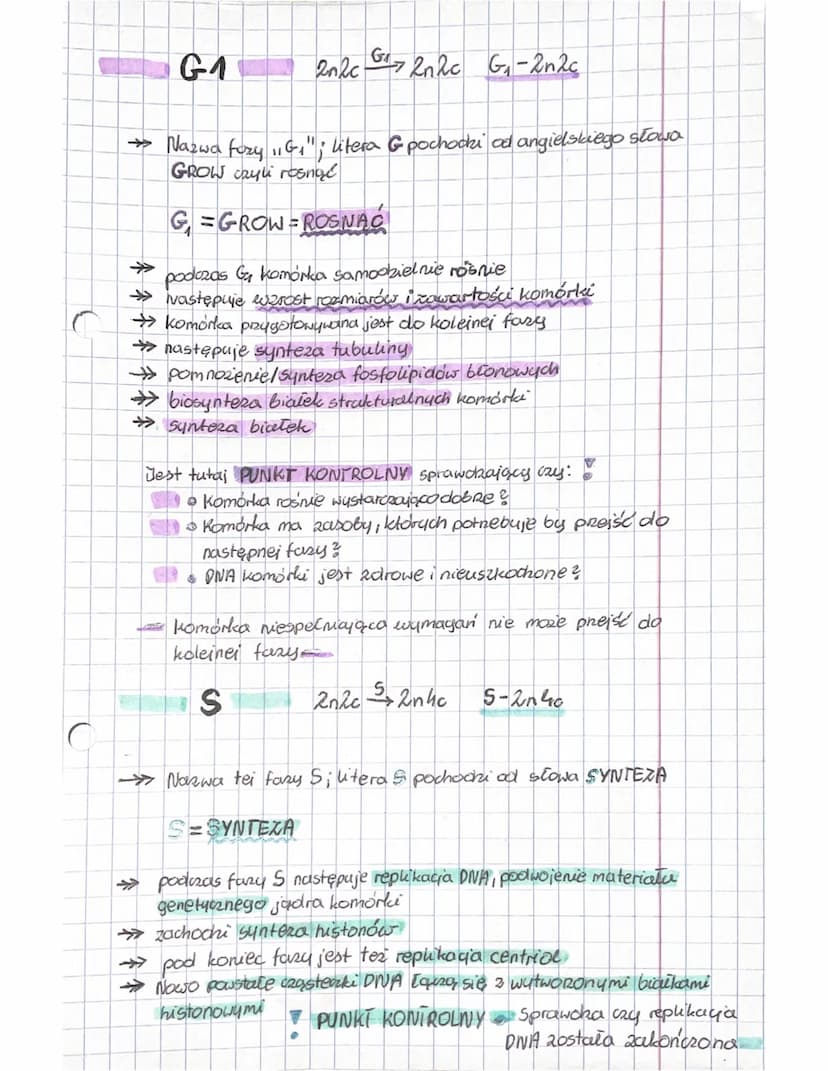 G1 2n2c G1→ 2n2c G1-2n2c
→ Nazwa fazy "G1"; litera G pochodzi od angielskiego słowa
GROW czyli rosnąć
G1 = GROW = ROSNĄĆ
→ podczas G1 komórka samodzielnie rośnie
→ Następuje wzrost rozmiarów i zawartości komórki
→ komórka przygotowywana jest do kolejnej fazy
→ następuje synteza tubuliny
→ pomnożenie/synteza fosfolipidów błonowych
→ biosynteza białek strukturalnych komórki
→ synteza białek
Jest tutaj PUNKT KONTROLNY sprawdzający czy: !
• Komórka rośnie wystarczająco dobrze?
• Komórka ma zasoby, których potrzebuje by przejść do
następnej fazy?
• DNA komórki jest zdrowe i nieuszkodzone?
— komórka niespełniająca wymagań nie może przejść do
kolejnej fazy —
S 2n2c S→ 2n4c S-2n4c
→ Nazwa tej fazy S; litera S pochodzi od słowa SYNTEZA
S = SYNTEZA
→ podczas fazy S następuje replikacja DNA, podwojenie materiału
genetycznego jądra komórki
→ zachodzi synteza histonów
→ pod koniec fazy jest też replikacja centriol
→ Nowo powstałe cząsteczki DNA łączą się z wytworzonymi białkami
histonowymi
! PUNKT KONTROLNY • Sprawdza czy replikacja
DNA została zakończona